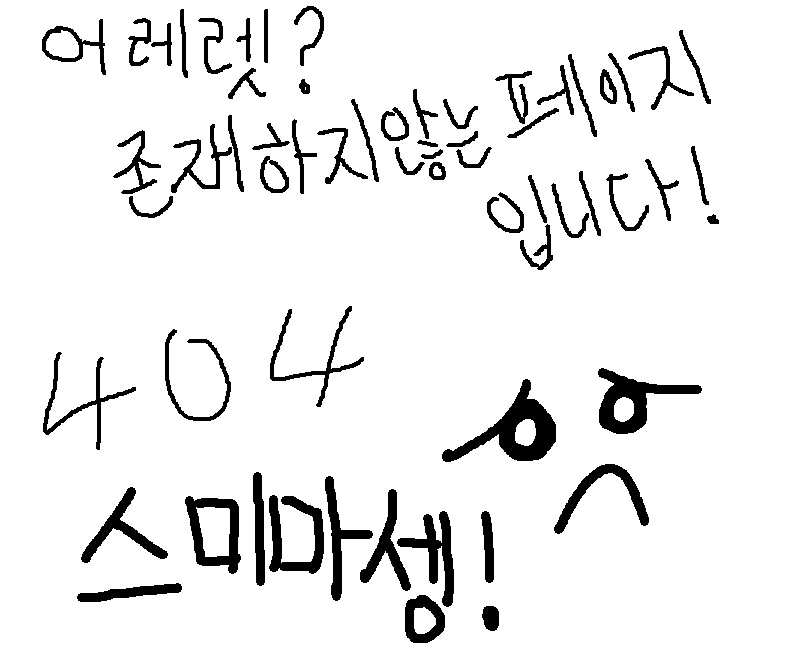 어레렛?
존재하지않는 페이지
입니다!
404
스미마셍!